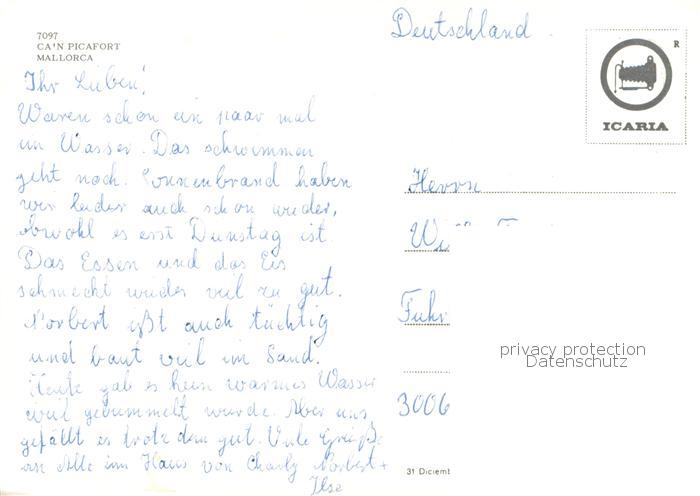 7097
CA'N PICAFORT
MALLORCA
Ihr Lieben!
Waren schon ein paar mal
im Wasser. Das schwimmen
geht noch. Sonnenbrand haben
wir leider auch schon wieder,
obwohl es erst Dienstag ist.
Das Essen und das Eis
schmeckt wieder viel zu gut.
Norbert ißt auch tüchtig
und baut viel im Sand.
Heute gab es kein warmes Wasser
weil gebummelt wurde. Aber uns
gefällt es trotz dem gut. Viele Grüße
an Alle im Haus von Charly Norbert +
Ilse
Deutschland.
R
ICARIA
Herrn
Fuhr
3006
privacy protection
Datenschutz
31 Diciemb